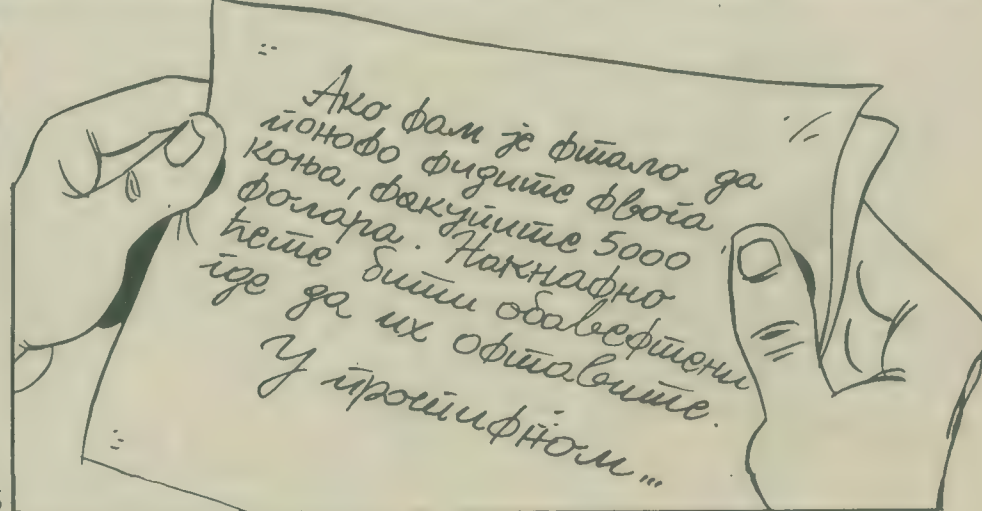 Ако фам је фтало да
понофо фидите фвога
коња, факупите 5000
фолара. Накнафно
ћете бити обавефтени
где да их офтавите.
У протифном...